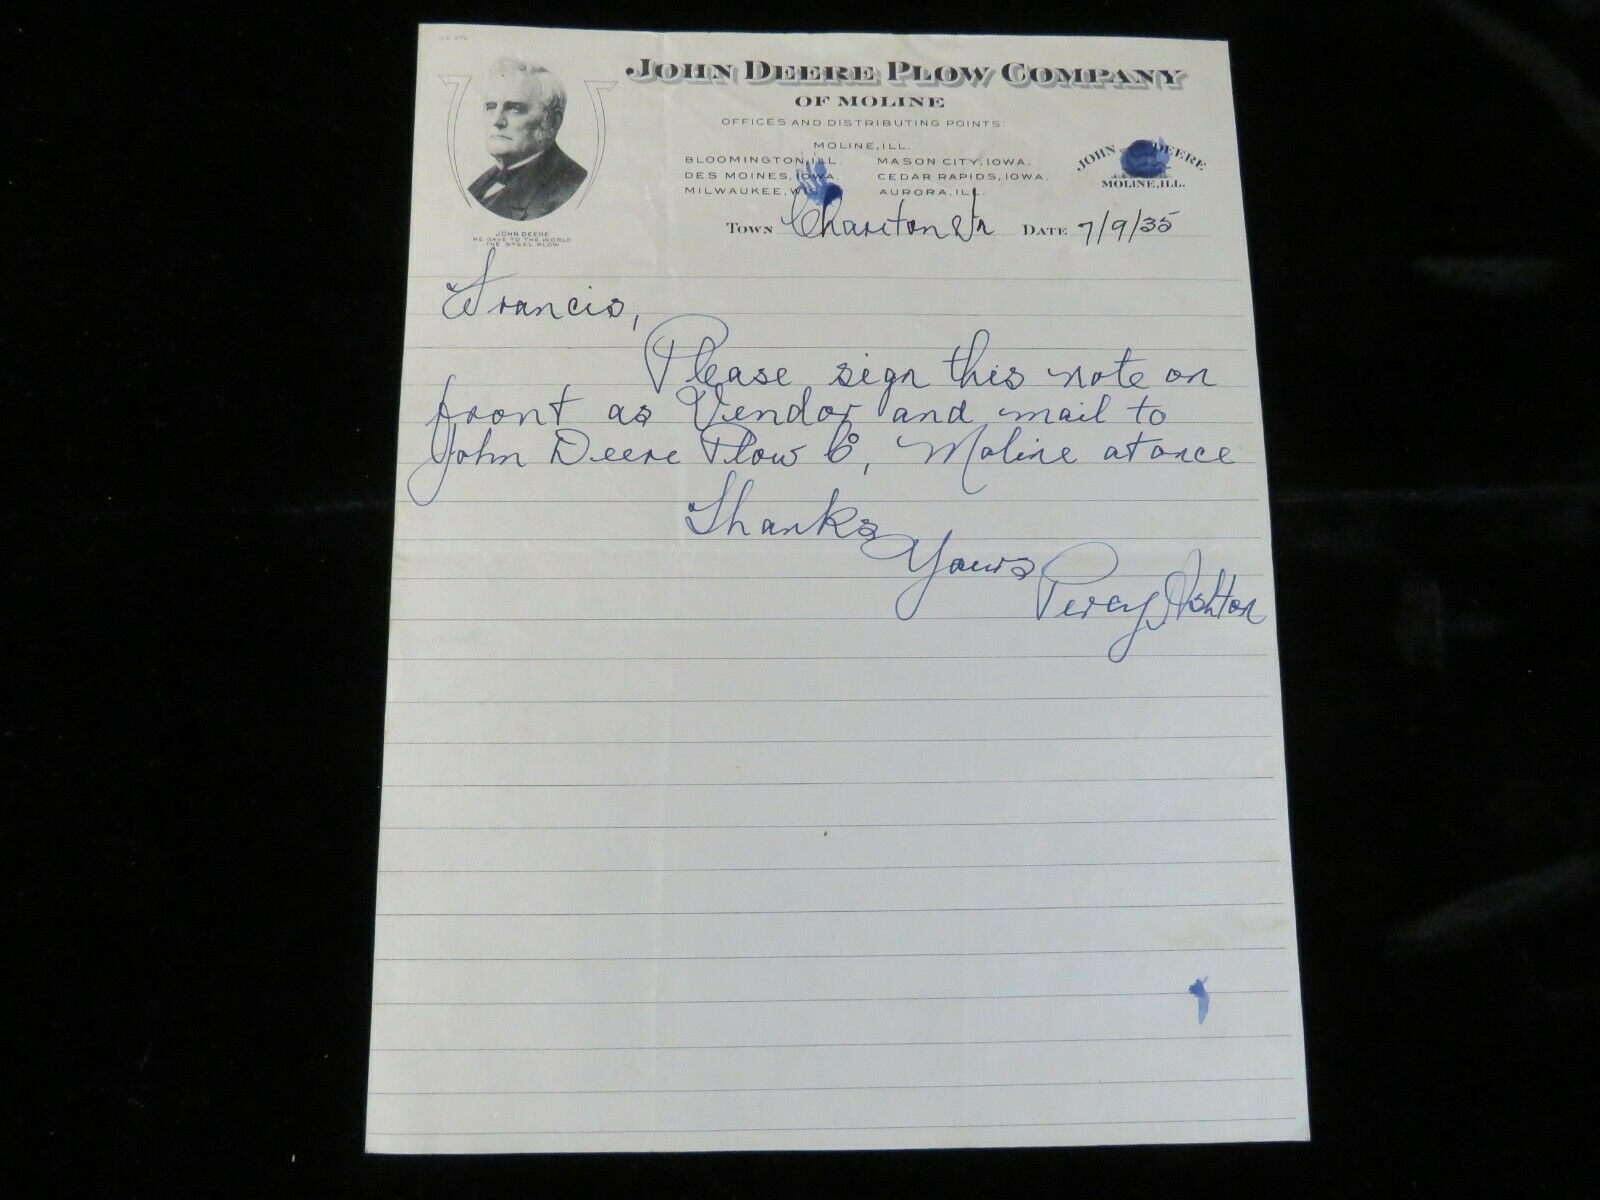 JOHN DEERE PLOW COMPANY
OF MOLINE
OFFICES AND DISTRIBUTING POINTS:
MOLINE, ILL.
BLOOMINGTON, ILL. MASON CITY, IOWA.
DES MOINES, IOWA. CEDAR RAPIDS, IOWA.
MILWAUKEE, WIS. AURORA, ILL.
JOHN DEERE
MOLINE, ILL.
JOHN DEERE
HE GAVE TO THE WORLD
THE STEEL PLOW
TOWN Chariton DATE 7/9/35
Francis,
Please sign this note on
front as Vendor and mail to
John Deere Plow Co, Moline at once
Thanks
Yours
Percy Ashton